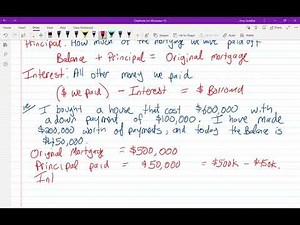 Principal: How much of the mortgage we have paid off
Balance + Principal = Original mortgage
Interest: All other money we paid
($ we paid) - Interest = $ Borrowed
I bought a house that cost $600,000 with
a down payment of $100,000. I have made
$200,000 worth of payments, and today the balance is
$450,000.
Original Mortgage = $500,000
Principal paid = $50,000 = $500k - $450k.
Int